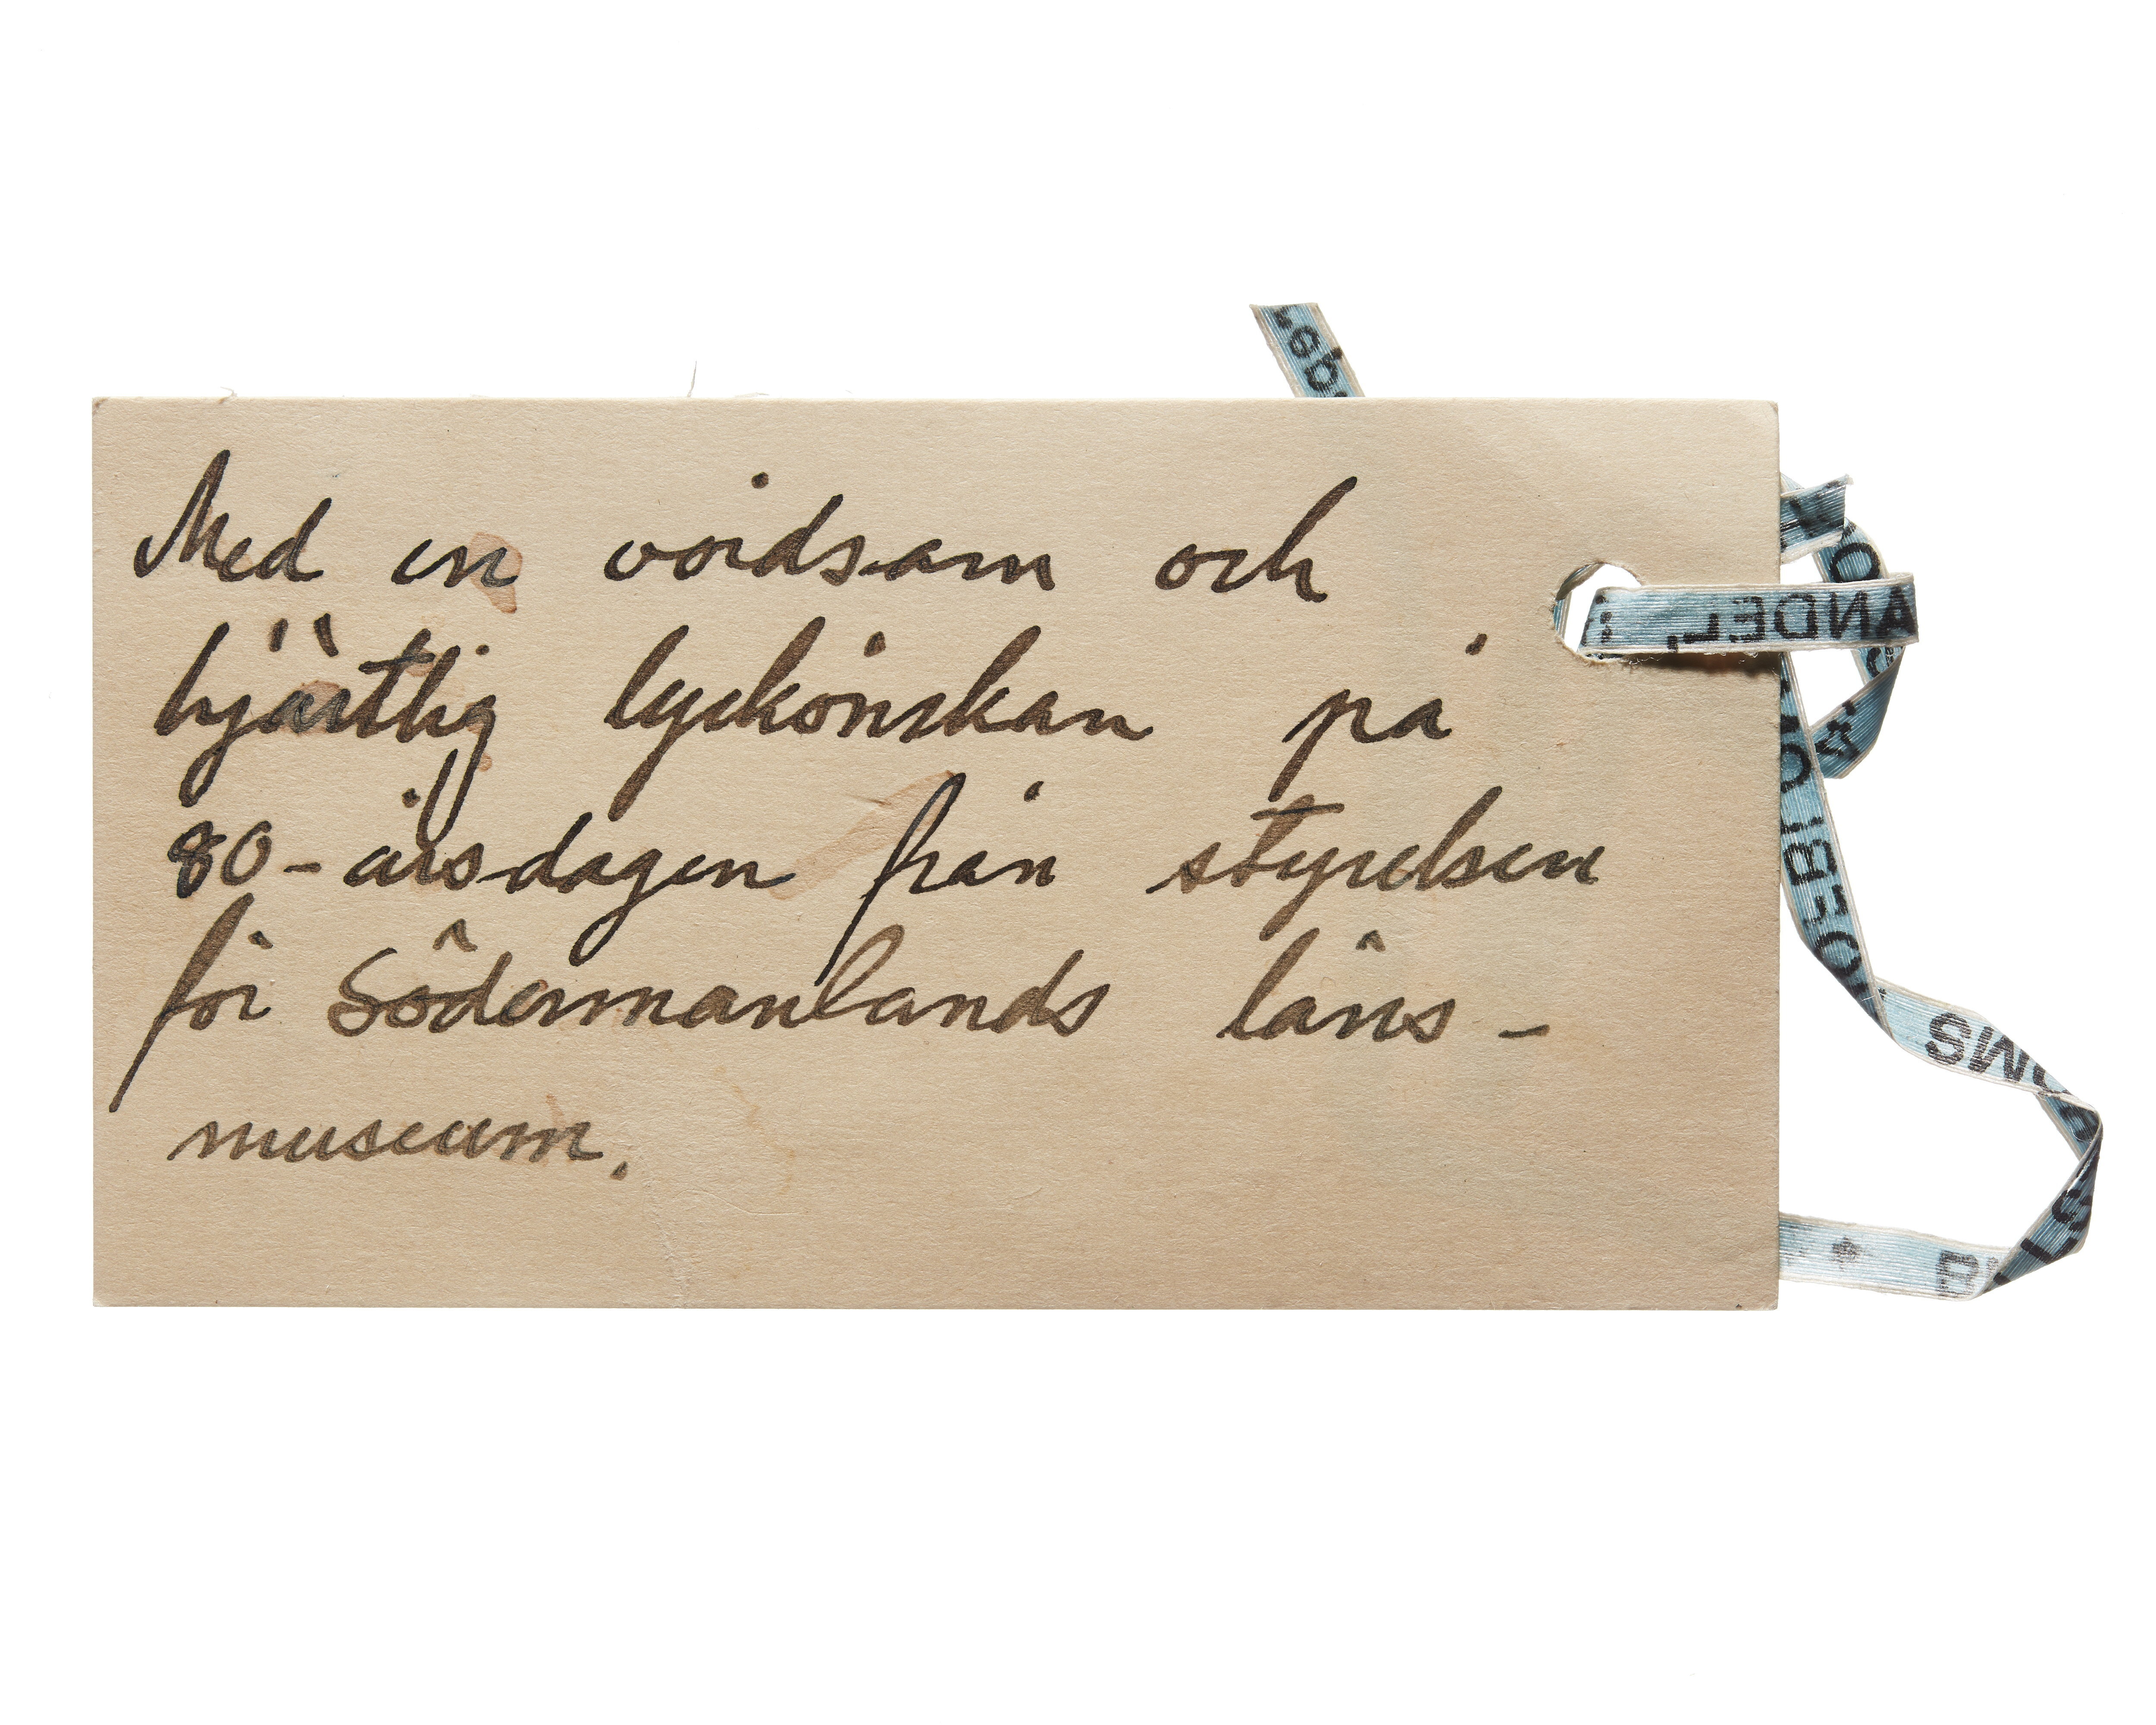 Med en vördsam och
hjärtlig lyckönskan på
80-årsdagen från styrelsen
för Södermanlands läns-
museum.
ANDEL